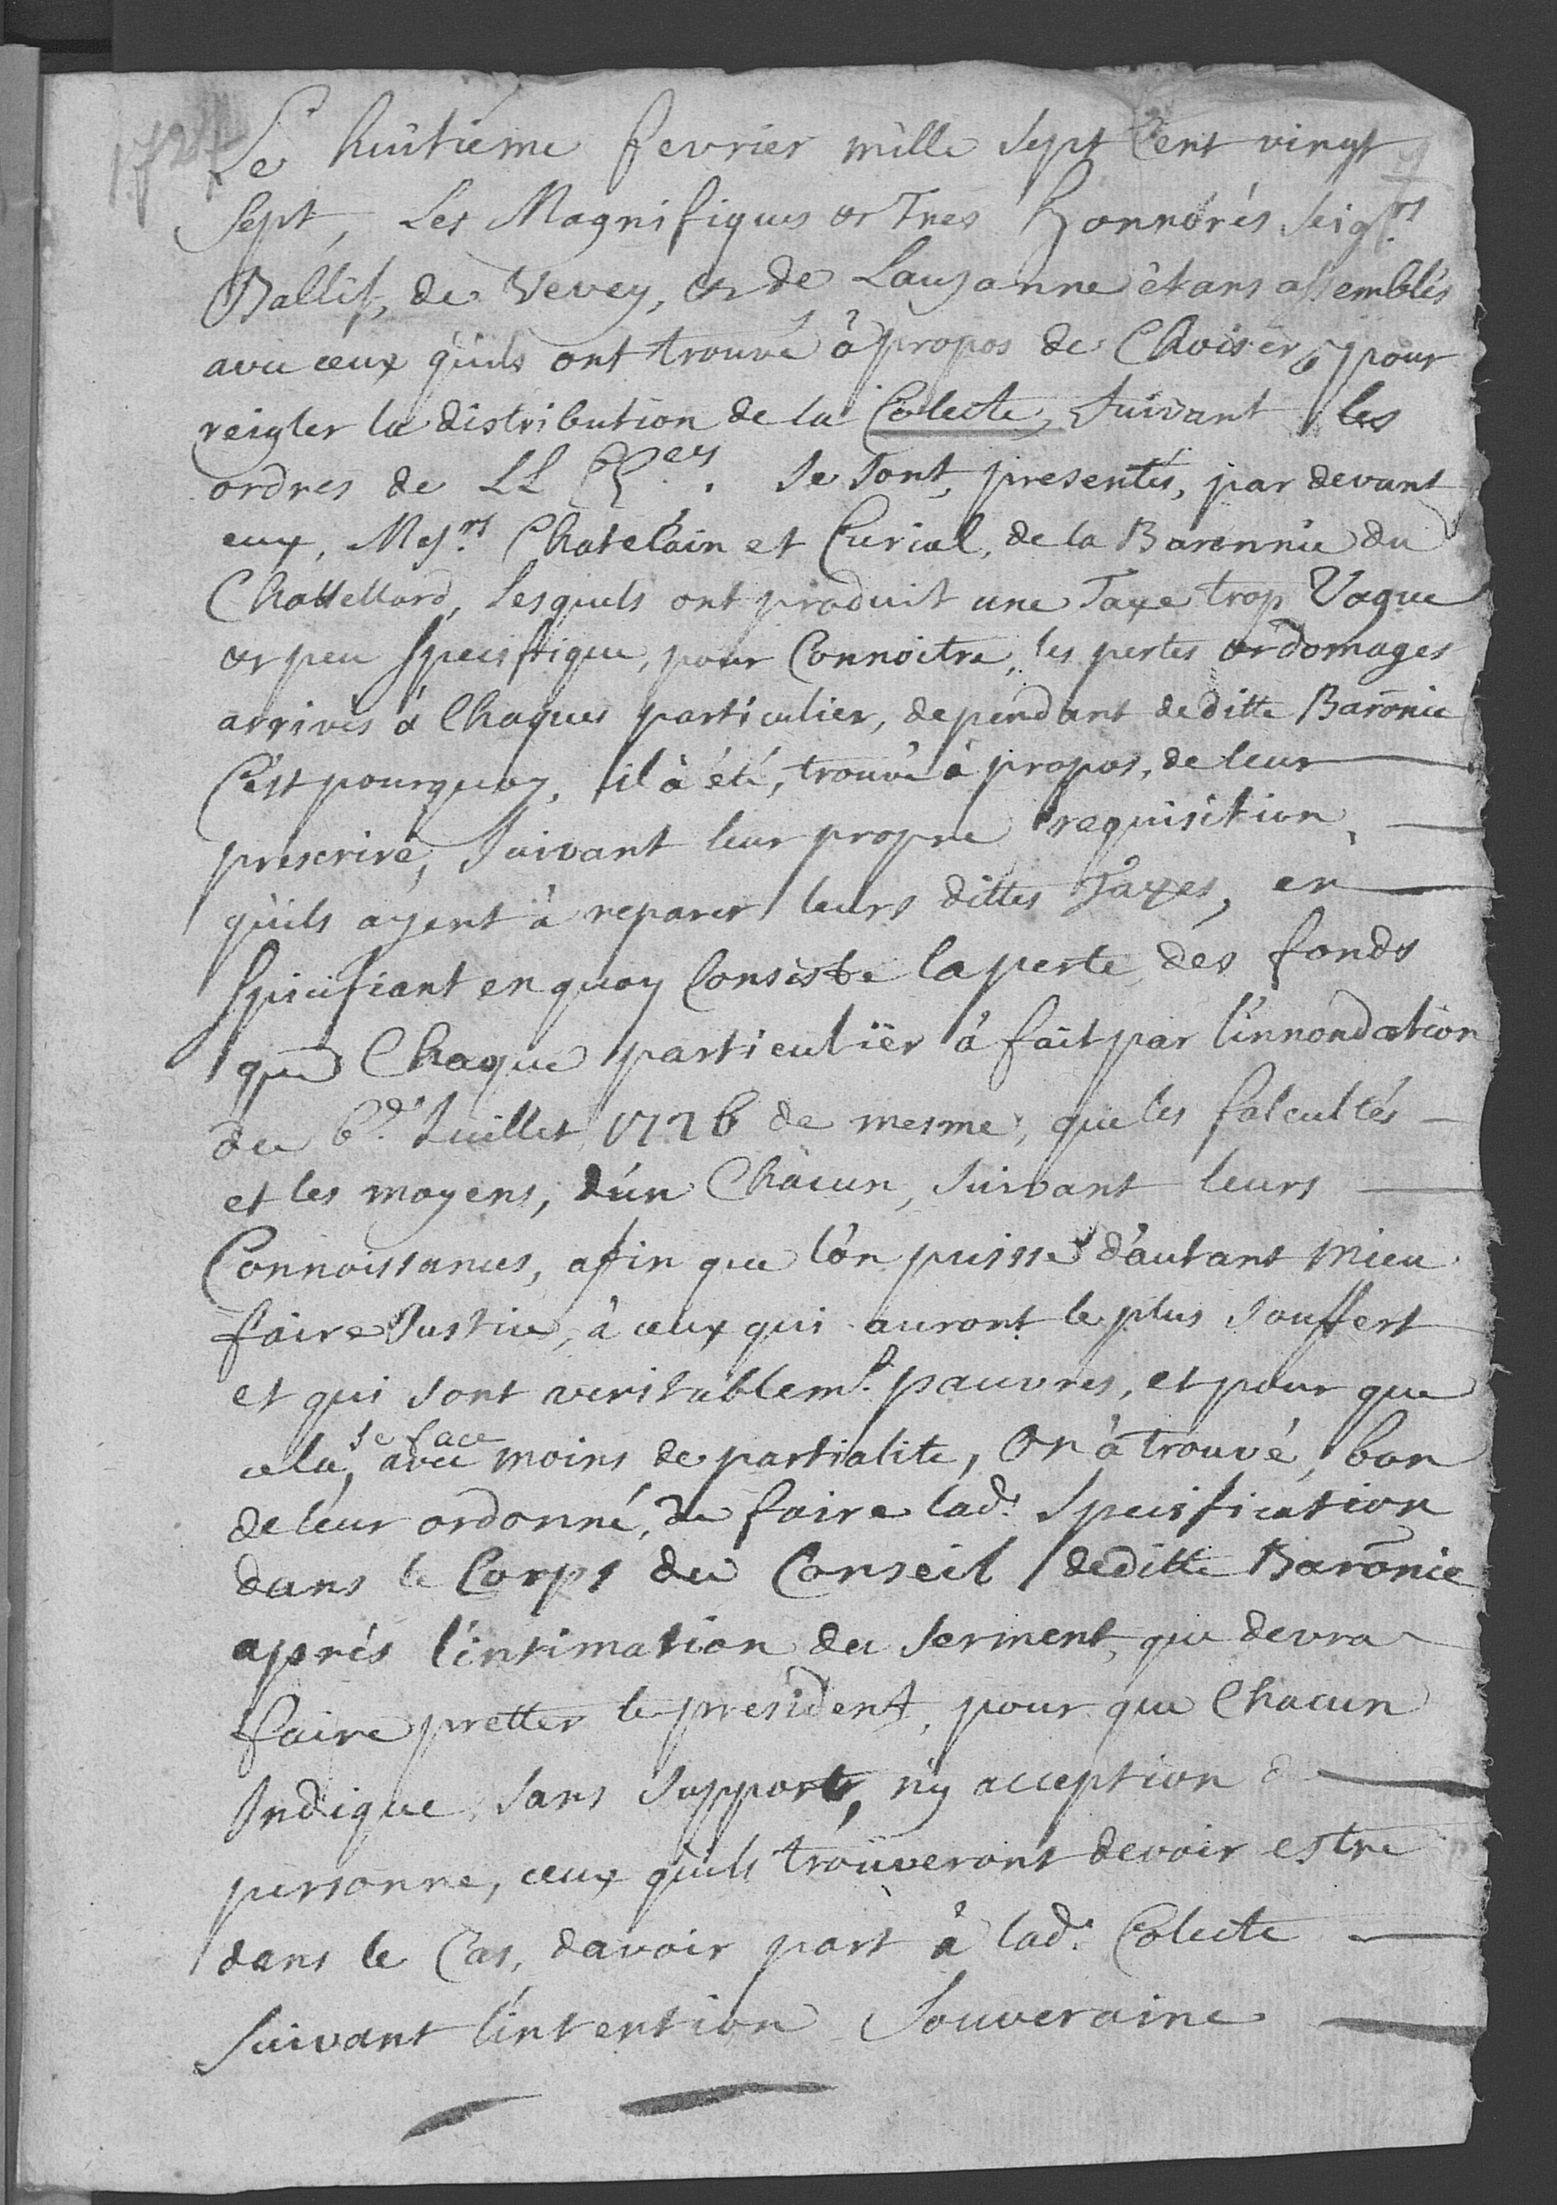 1727
Le huitiéme fevrier mille sept Cent vingt
sept, Les Magnifiques & Tres Honnorés Seigrs
Ballifs, de Vevey, & de Lausanne êtans assemblés
avec ceux qu'ils ont trouvé à propos de Choisir, pour
reigler la distribution de la Colecte, suivant les
ordres de LL EEces. se sont, presentés, par devant
eux, Mesrs Chatelain et Curial, de la Baronnie du
Chattellard, Lesquels ont produit une Taxe trop Vague
& peu specifique, pour Connoitre, les pertes & domages
arrivés à Chaques particulier, dependant de ditte Barõnie
C'est pourquoy, il à été, trouvé à propos, de leur
prescrire, suivant leur propre requisition,
qu'ils ayent à reparer leurs dittes Taxes, en
spécifiant en quoy Consiste la perte des fonds
que Chaque particuliër à fait par l'innondation
du 6e. Juillet 1726 de mesme, que les falcultés
et les moyens, d'un Chacun, suivant leurs
Connoissances, afin que l'on puisse d'autant mieu
faire Justice, à ceux qui auront le plus souffert
et qui sont veritablemt. pauvres, et pour que
cela, se face avec moins de partialite, On à trouvé, bon
de leur ordonné, de faire lad. specification
dans le Corps du Conseil de ditte Barõnie
aprés l'intimation du serment, que devra
faire pretter le president, pour que Chacun
Indique, sans support, ny acception d
personne, ceux qu'ils trouveront devoir estre
dans le Cas, davoir part à lad. Colecte
suivant l'intention Souveraine